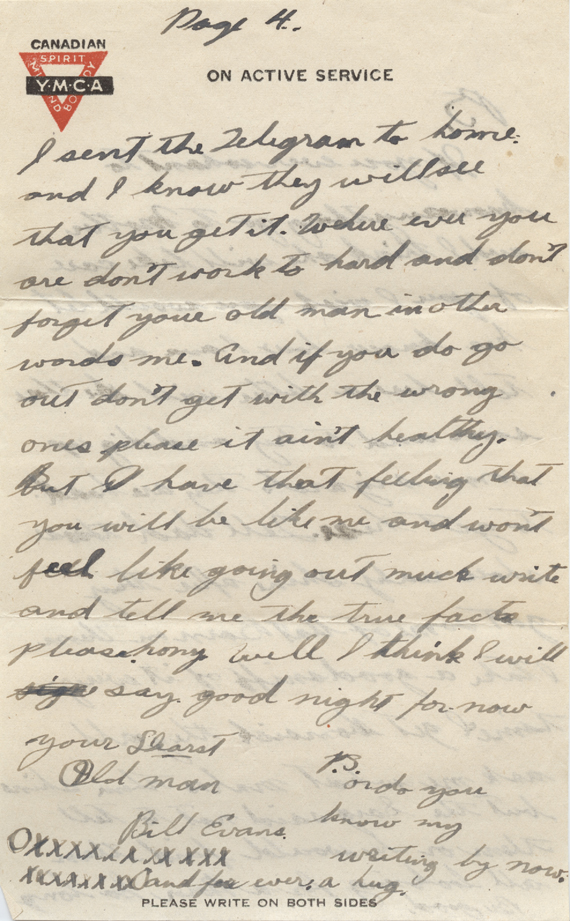 Page 4.
CANADIAN
SPIRIT
MIND
BODY
Y·M·C·A
ON ACTIVE SERVICE
I sent the Telegram to home.
and I know they will see
that you get it. Where ever you
are don't work to hard and don't
forget youre old man in other
words me. And if you do go
out don't get with the wrong
ones please it ain't healthy.
But I have that feeling that
you will be like me and won't
feel like going out much write
and tell me the true facts
please hony. Well I think I will
sign say good night for now
your Dearst
Old man
Bill Evans.
OXXXXXXXXXXX
XXXXXXX and for ever, a hug.
P.S.
or do you
know my
writing by now.
PLEASE WRITE ON BOTH SIDES